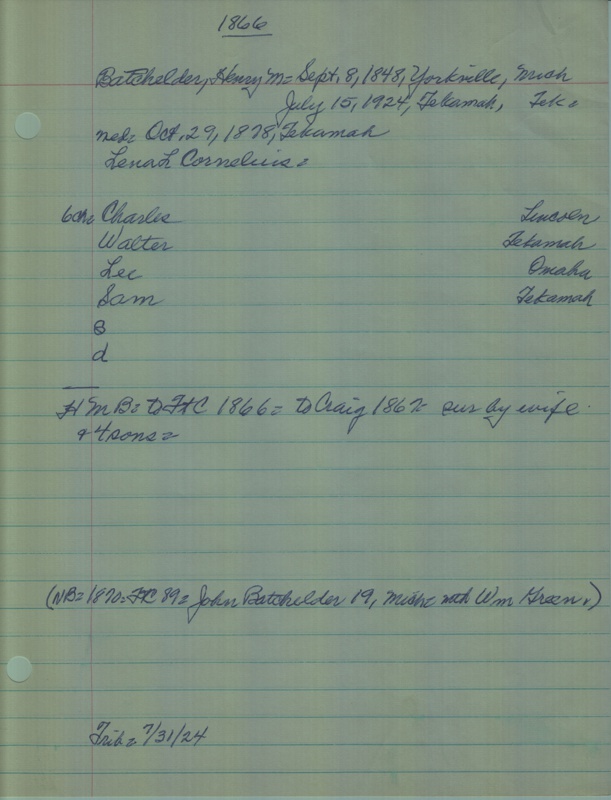 1866
Batchelder, Henry M= Sept. 8, 1848, Yorkville, Mich
July 15, 1924, Tekamah, Tek=
med= Oct. 29, 1878, Tekamah
Lena L Cornelius=
6ch= Charles Lincoln
Walter Tekamah
Lee Omaha
Sam Tekamah
s
d
H M B= to Ft C 1866= to Craig 1867= sur by wife
& 4 sons=
(NB= 1870= Ft C 89= John Batchelder 19, Mich= with Wm Green.)
Trib= 7/31/24